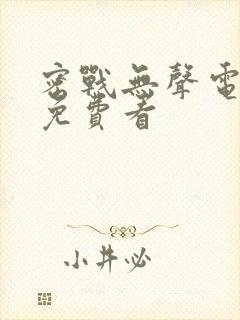 密戰無聲電
免費看
小井必